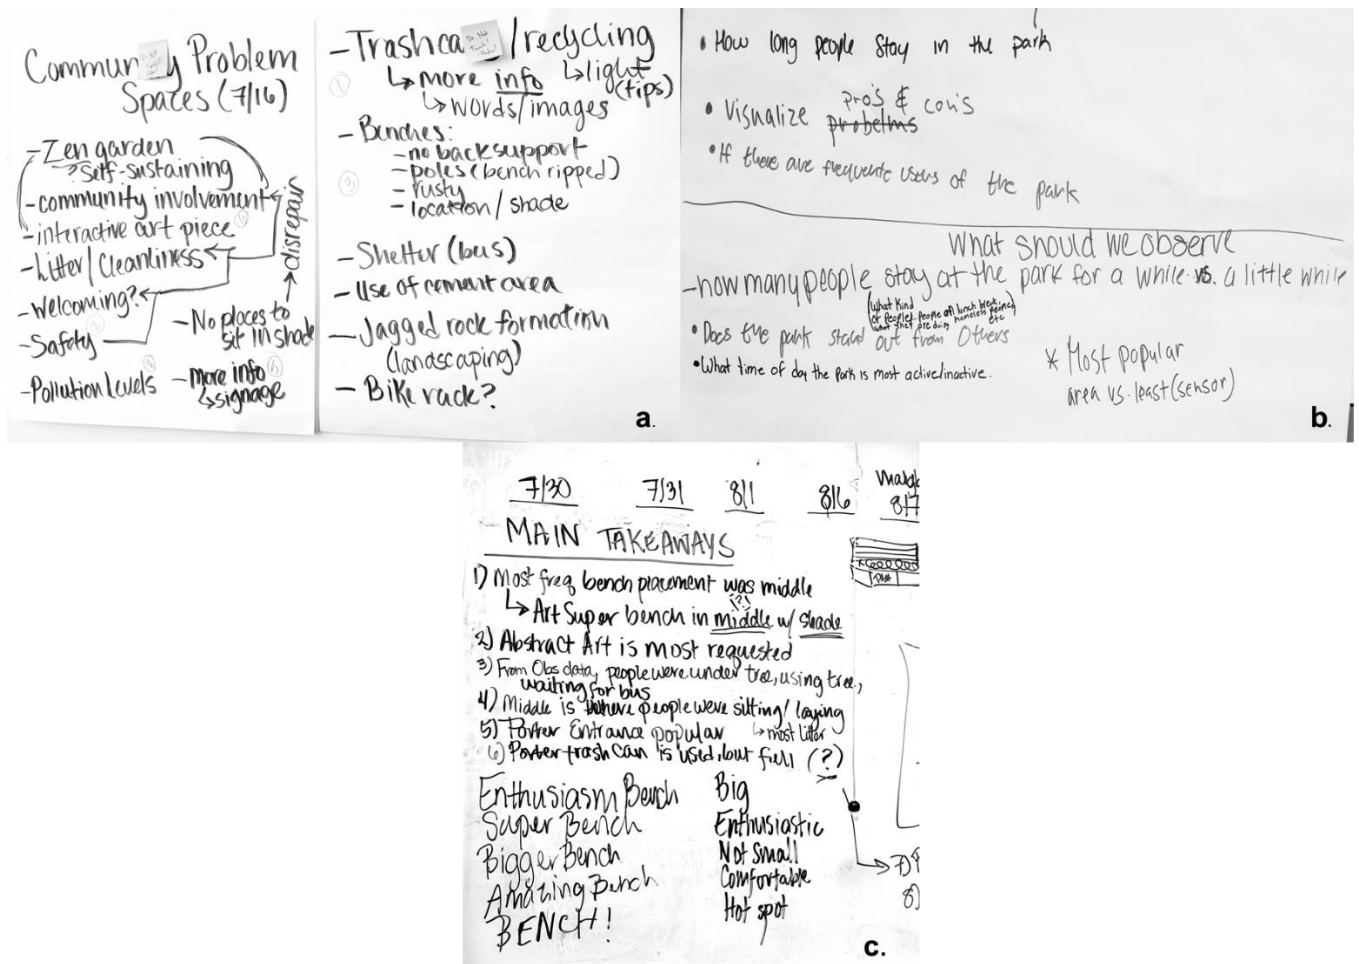 Community Problem
Spaces (7/16)
-Zen garden
? Self-sustaining
-community involvement
-interactive art piece
-Litter/Cleanliness
-Welcoming?
-Safety
-Pollution Levels
disrepair
-No places to
sit in shade
-more info
↳signage
-Trashca /recycling
↳more info
↳light
(tips)
↳words/images
-Benches:
-no back support
-poles (bench ripped)
-rusty
-location/shade
-Shelter (bus)
-Use of cement area
-Jagged rock formation
(landscaping)
-Bike rack?
a.
• How long people stay in the park
• Visualize probelms pro's & con's
• If there are frequente users of the park
What should we observe
-how many people stay at the park for a while vs. a little while
(What kind
of people? people on lunch break
what they are doing homeless people
etc
• Does the park stand out from Others
• What time of day the park is most active/inactive.
* Most popular
area vs. least (sensor)
b.
7/30 7/31 8/1 8/6 8/7
MAIN TAKEAWAYS
1) Most freq bench placement was middle
(?!)
↳Art Super bench in middle w/ shade
2) Abstract Art is most requested
3) From Obs data, people were under tree, using tree,
waiting for bus
4) Middle is where people were sitting/laying
↳most litter
5) Porter Entrance popular
6) Porter trash can is used, but full (?)
Enthusiasm Bench
Super Bench
Bigger Bench
Amazing Bench
BENCH!
Big
Enthusiastic
Not Small
Comfortable
Hot spot
7)
8)
c.